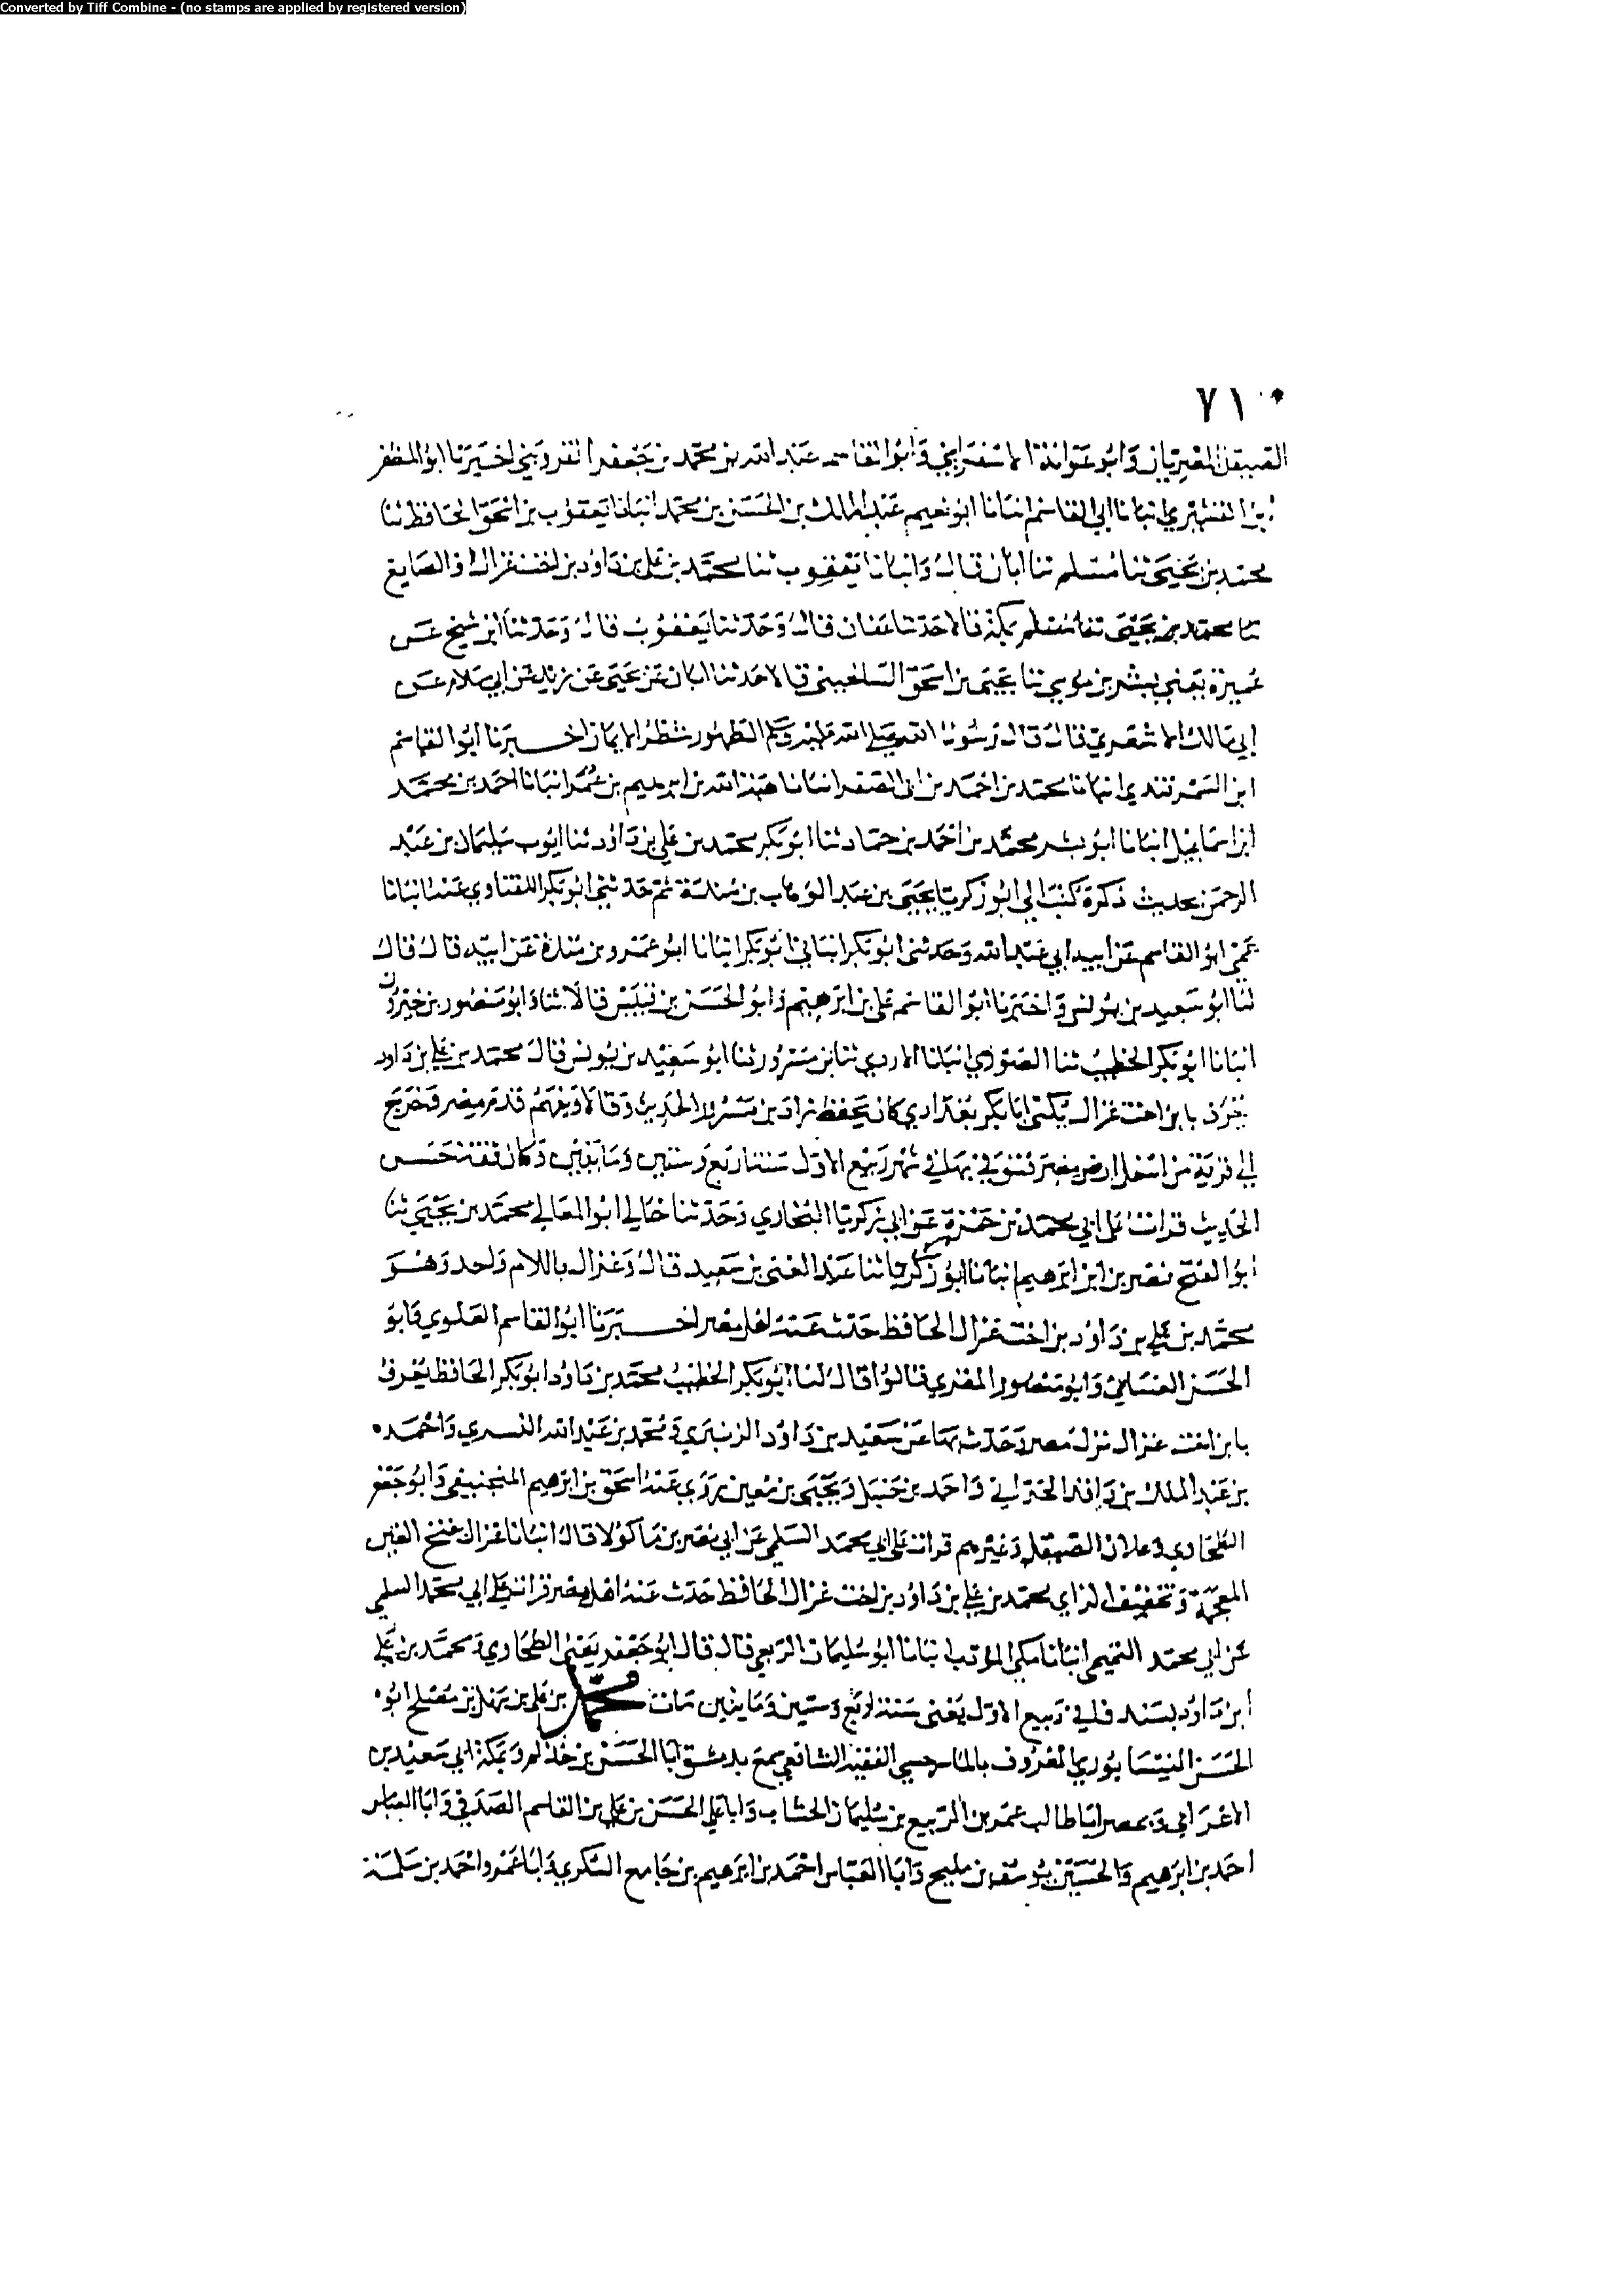 Converted by Tiff Combine - (no stamps are applied by registered version)
٧١٠
الصيقل المصريان وابو عوانة الاسفرايني وابو القاسم عبد الله بن محمد بن جعفر القزويني اخبرنا ابو المظفر
بن القشيري انبانا ابي القاسم انبانا ابو نعيم عبد الملك بن الحسن بن محمد انبانا يعقوب بن اسحق الحافظ ثنا
محمد بن يحيى ثنا مسلم ثنا ابان قال وانبانا يعقوب ثنا محمد بن علي بن داود بن اخت غزال والصايغ
محمد بن يحيى بمكة قالا حدثنا عفان قال وحدثنا يعقوب قال وحدثنا ابن شيخ عن
عميرة يعني بشر بن موسى ثنا يحيى بن اسحق السلحيني قالا حدثنا ابان عن يحيى عن زيد عن ابي سلام عن
ابي مالك الاشعري قال قال رسول الله صلى الله عليه وسلم الطهور شطر الايمان اخبرنا ابو القاسم
ابن السمرقندي انبانا محمد بن احمد بن ابي الصقر انبانا هبة الله بن ابرهيم بن عمر انبانا احمد بن محمد
ابن اسماعيل انبانا ابو بشر محمد بن احمد بن حماد ثنا ابو بكر محمد بن علي بن داود ثنا ايوب سليمان بن عبد
الرحمن بحديث ذكره كتب الي ابو زكريا يحيى بن عبد الوهاب بن منده ثم حدثني ابو بكر اللفتواني عنه انبانا
عمي ابو القاسم عن ابيه ابي عبد الله وحدثني ابو بكر ابو بكر انبانا ابو عمرو بن منده عن ابيه قال قال
لنا ابو سعيد بن يونس واخبرنا ابو القاسم علي بن ابرهيم وابو الحسن بن قبيس قالا ثنا وابو منصور بن خيرون
انبانا ابو بكر الخطيب ثنا الصوري انبانا الازدي ثنا بن مسرور ثنا ابو سعيد بن يونس قال محمد بن علي بن داود
يعرف بابن اخت غزال يكنى ابا بكر بغدادي كان يحفظ زاد بن مسرور الحديث وقالا ويفهم قدم مصر فخرج
الى قرية من اسفل ارض مصر فتوفي بها في شهر ربيع الاول سنة اربع وستين ومايتين وكان ثقة حسن
الحديث قرات على ابي محمد بن حمزة عن ابي زكريا البخاري وحدثنا خالي ابو المعالي محمد بن يحيى ثنا
ابو الفتح نصر بن ابرهيم انبانا ابو زكريا ثنا عبد الغني بن سعيد قال وغزال باللام واحد وهو
محمد بن علي بن داود بن اخت غزال الحافظ حدث عنه اهل مصر اخبرنا ابو القاسم العلوي وابو
الحسن الغساني وابو منصور المقري قالوا قال لنا ابو بكر الخطيب محمد بن داود ابو بكر الحافظ يعرف
بابن اخت غزال نزل مصر وحدث بها عن سعيد بن داود الزنبري ومحمد بن عبد الله واحمد
بن عبد الملك بن واقد الحراني واحمد بن حنبل ويحيى بن معين روى عنه اسحق بن ابرهيم المنجنيقي وابو جعفر
الطحاوي وعلان الصيقل وغيرهم قرات على ابي محمد السلمي عن ابي نصر بن ماكولا قال انبانا غزال بفتح الغين
المعجمة وتخفيف الزاي محمد بن علي بن داود بن اخت غزال الحافظ حدث عنه اهل مصر قرات على ابي محمد السلمي
عن ابي محمد التميمي انبانا مكي المؤدب انبانا ابو سليمان الربعي قال قال ابو جعفر يعني الطحاوي محمد بن علي
ابن داود في ربيع الاول يعني سنة اربع وستين ومايتين مات محمد بن علي بن سهل بن مصلح ابو
الحسن النيسابوري المعروف بالماسرجسي الفقيه الشافعي سمع بدمشق ابا الحسن بن حذلم وبمكة ابي سعيد بن
الاعرابي وبمصر ابا طالب عمر بن الربيع بن سليمان الخشاب وابا علي الحسن بن علي بن القاسم الصدفي وابا العباس
احمد بن ابرهيم والحسين بن يوسف بن مليح وابا العباس احمد بن ابرهيم بن جامع السكري وابا عمرو احمد بن سلمة